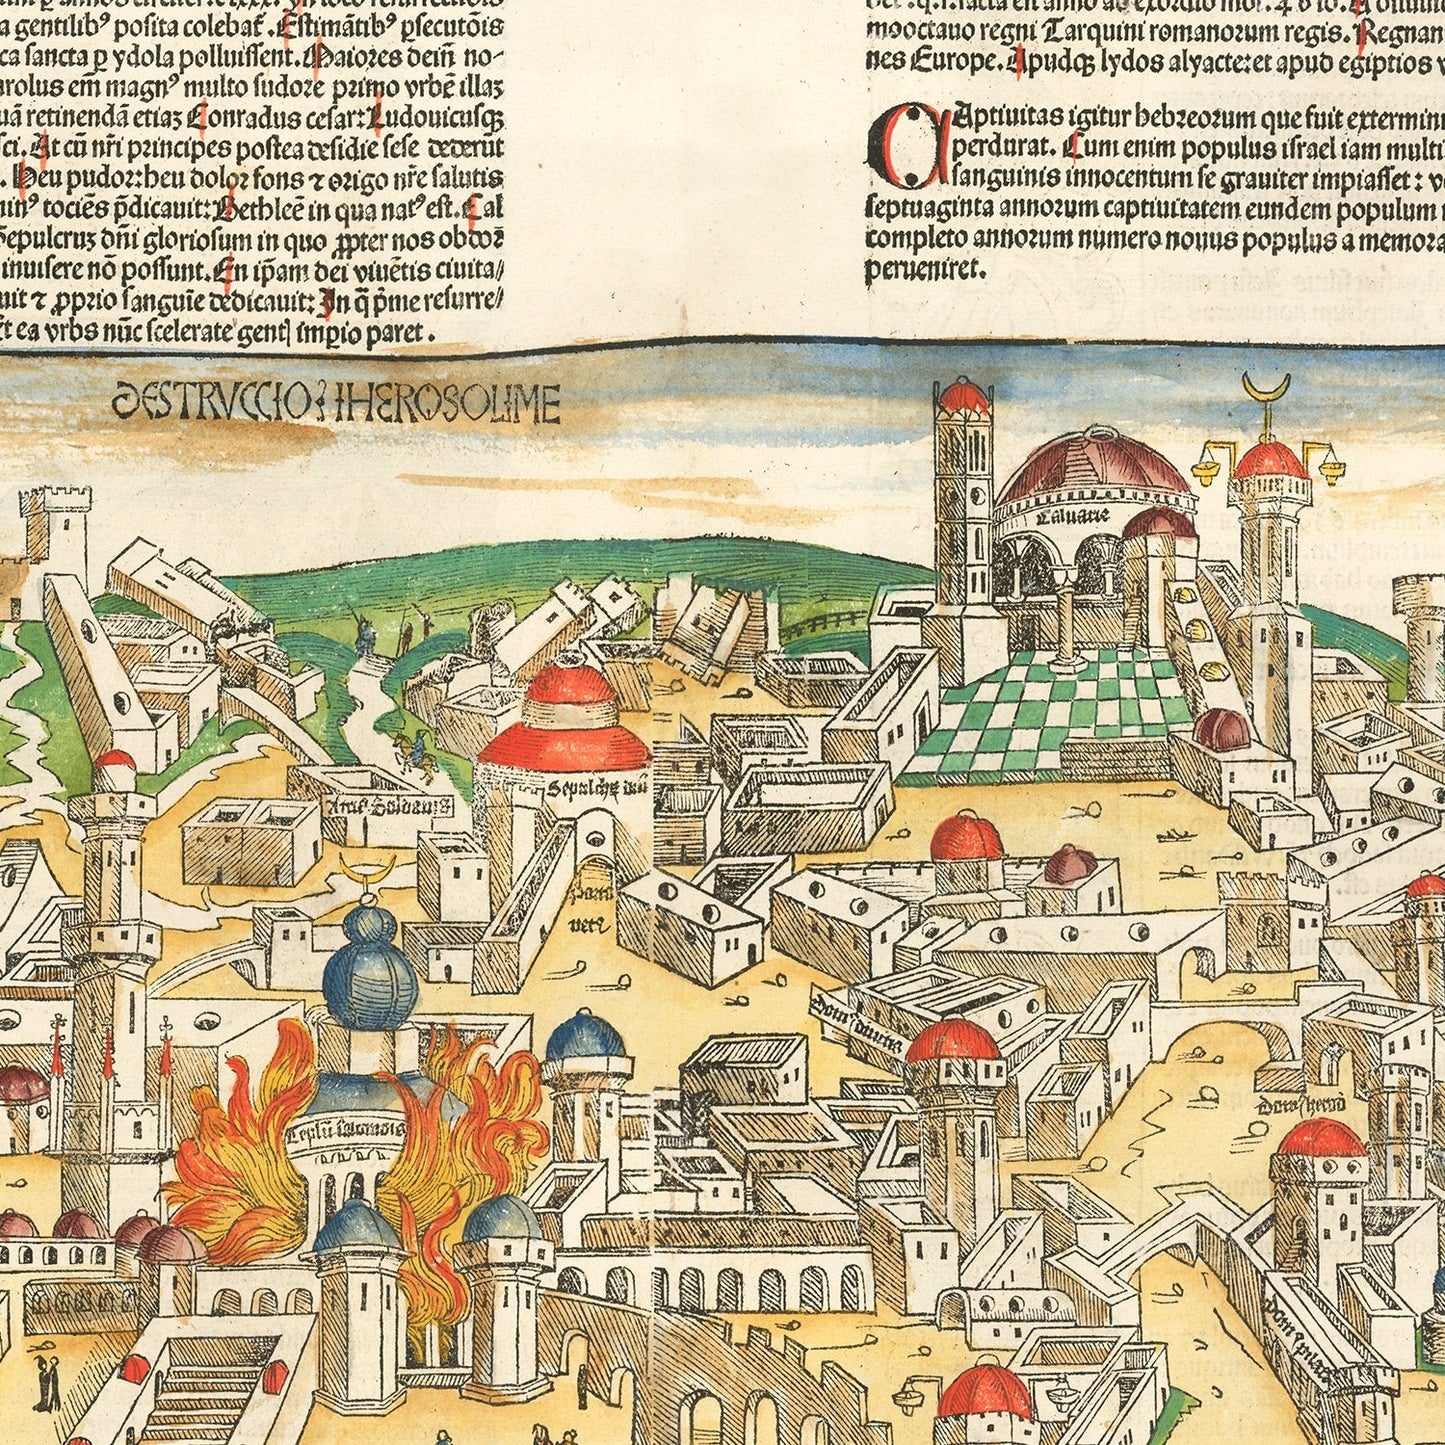 a gentilibꝰ posita colebat̄. Estimātibꝰ ꝑsecutōis
ca sancta ꝑ ydola polluissent. Maiores dein̄ no-
arolus em̄ magnꝰ multo sudore primo vrbē illaꝫ
uā retinendā etiaꝫ Conradus cesar: Ludouicusqꝫ
sci. At cū nr̄i principes postea desidie sese dederūt
. Heu pudor: heu dolor fons ⁊ origo nr̄e salutis
minꝰ tociēs p̄dicauit: Bethleē in qua natꝰ est. Cal
Sepulcruꝫ dn̄i gloriosum in quo ꝓpter nos obdor
inuisere nō possunt. En ip̄am dei viuētis ciuita/
uit ⁊ ꝓprio sanguīe dedicauit: In q̄ p̄me resurre/
t ea vrbs nūc scelerate gent] impio paret.
mooctauo regni Tarquini romanorum regis. Regnan
nes Europe. Apudqꝫ lydos alyacte: et apud egiptios
CAptiuitas igitur hebreorum que fuit extermini
perdurat. Cum enim populus israel iam multi
sanguinis innocentum se grauiter impiasset: v
septuaginta annorum captiuitatem eundem populum
completo annorum numero nouus populus a memora
perueniret.
DESTRVCCIO: IHEROSOLIME
Caluarie
Sepulchꝝ dn̄i
Porta
Dom⁹ dauit
Teplū salomōis
Dom⁹ herod
Dom⁹ pilati